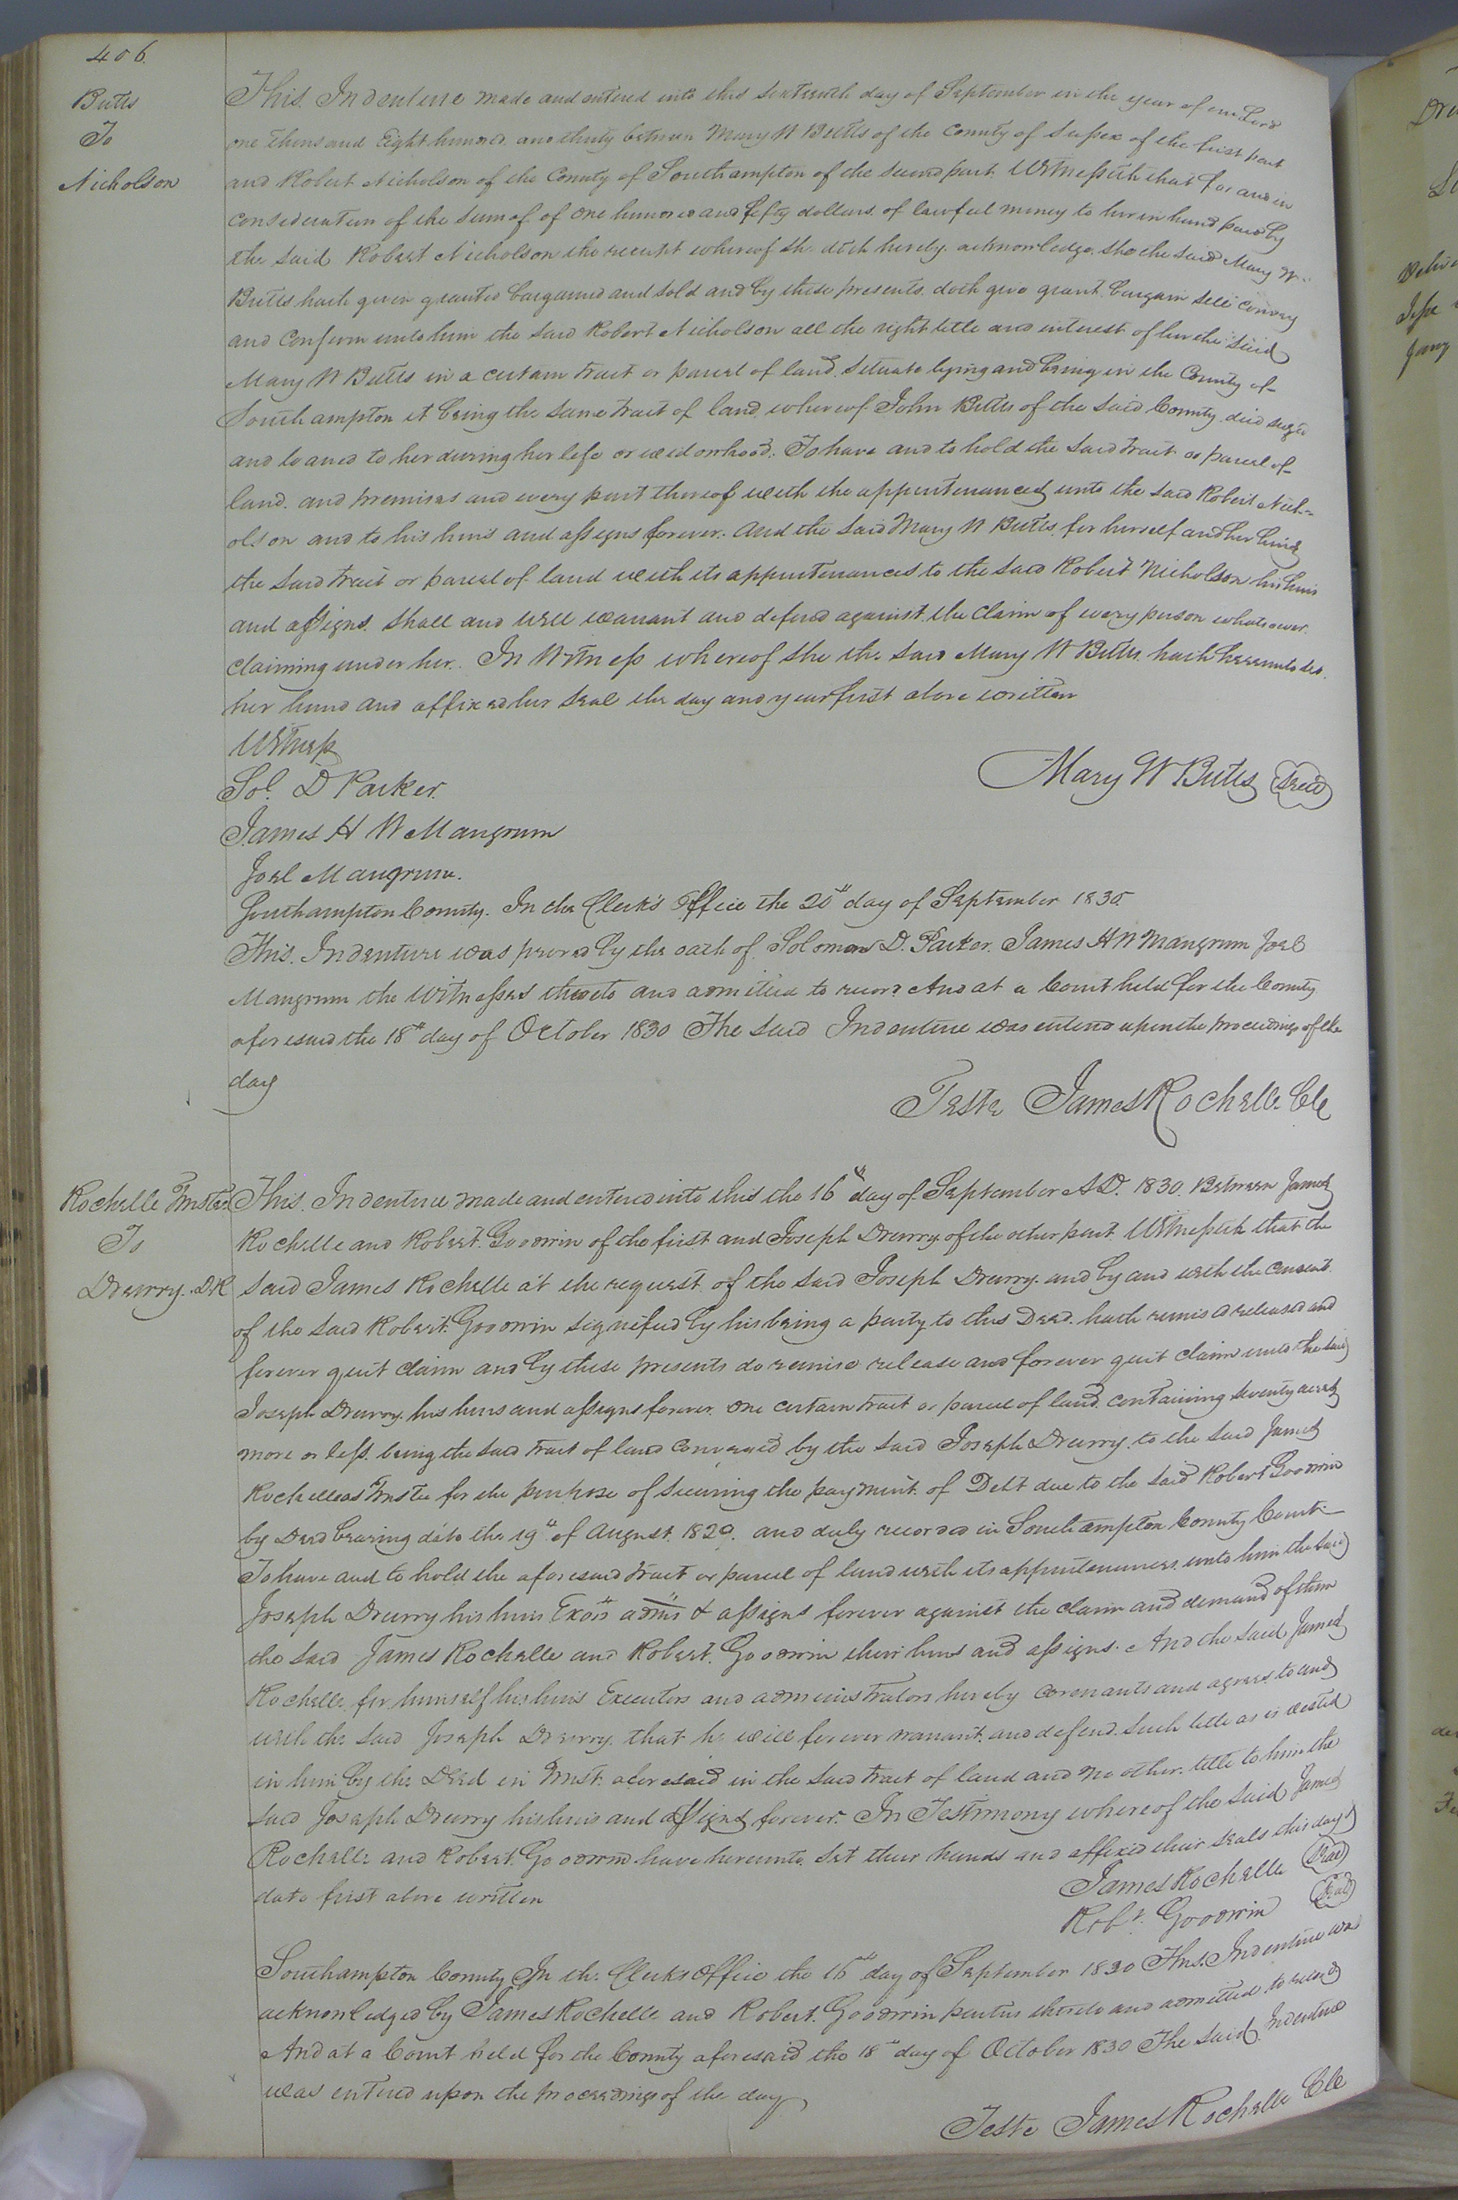 406.
Butts
To
Nicholson
This Indenture made and entered into this sixteenth day of September in the year of our Lord
one thousand Eight hundred and thirty between Mary W Butts of the County of Sussex of the first part
and Robert Nicholson of the County of Southampton of the second part Witnesseth that for and in
consideration of the sum of of one hundred and fifty dollars of lawful money to her in hand paid by
the said Robert Nicholson the receipt whereof she doth hereby acknowledge, she the said Mary W
Butts hath given granted bargained and sold and by these presents doth give grant bargain sell convey
and Confirm unto him the said Robert Nicholson all the right title and interest of her the said
Mary W Butts in a certain tract or parcel of land situate lying and being in the County of
Southampton it being the same tract of land whereof John Butts of the said County died
and loaned to her during her life or widowhood. To have and to hold the said tract or parcel of
land and premises and every part thereof with the appurtenances unto the said Robert Nich=
olson and to his heirs and assigns forever. And the said Mary W Butts for herself and her heirs
the said tract or parcel of land with its appurtenances to the said Robert Nicholson his heirs
and assigns shall and will warrant and defend against the claim of every person whatsoever
claiming under her. In Witness whereof she the said Mary W Butts hath hereunto set
her hand and affixed her seal the day and year first above written
Witness
Sol. D Parker.
Mary W Butts Seal
James H W Mangrum
Joel Mangrum.
Southampton County. In the Clerk's Office the 20th day of September 1830.
This Indenture was proved by the oath of Solomon D. Parker. James H W Mangrum Joel
Mangrum the Witnesses thereto and admitted to record And at a Court held for the County
aforesaid the 18th day of October 1830 The said Indenture was entered upon the proceedings of the
day
Teste James Rochelle Clk
Rochelle Trustee
To
Drewry. DR
This Indenture made and entered into this the 16th day of September A.D. 1830. Between James
Rochelle and Robert Goodwin of the first and Joseph Drewry of the other part Witnesseth that the
said James Rochelle at the request of the said Joseph Drewry and by and with the consent
of the said Robert Goodwin signified by his being a party to this Deed hath remised released and
forever quit claim and by these presents do remise release and forever quit claim unto the said
Joseph Drewry his heirs and assigns forever one certain tract or parcel of land containing seventy acres
more or less being the said tract of land conveyed by the said Joseph Drewry to the said James
Rochelle as Trustee for the purpose of securing the payment of Debt due to the said Robert Goodwin
by Deed bearing date the 19th of August 1829. and duly recorded in Southampton County Court
To have and to hold the aforesaid tract or parcel of land with its appurtenances unto him the said
Joseph Drewry his heirs Exors admrs & assigns forever against the claim and demand of them
the said James Rochelle and Robert Goodwin their heirs and assigns. And the said James
Rochelle for himself his heirs Executors and administrators hereby covenants and agrees to and
with the said Joseph Drewry that he will forever warrant and defend such title as is vested
in him by the Deed in Trust aforesaid in the said tract of land and no other title to him the
said Joseph Drewry his heirs and assigns forever. In Testimony whereof the said James
Rochelle and Robert Goodwin have hereunto set their hands and affixed their seals this day &
date first above written
James Rochelle Seal
Robt. Goodwin Seal
Southampton County In the Clerks Office the 16th day of September 1830 This Indenture was
acknowledged by James Rochelle and Robert Goodwin parties thereto and admitted to record
And at a Court held for the County aforesaid the 18th day of October 1830 The said Indenture
was entered upon the proceedings of the day
Teste James Rochelle Clk